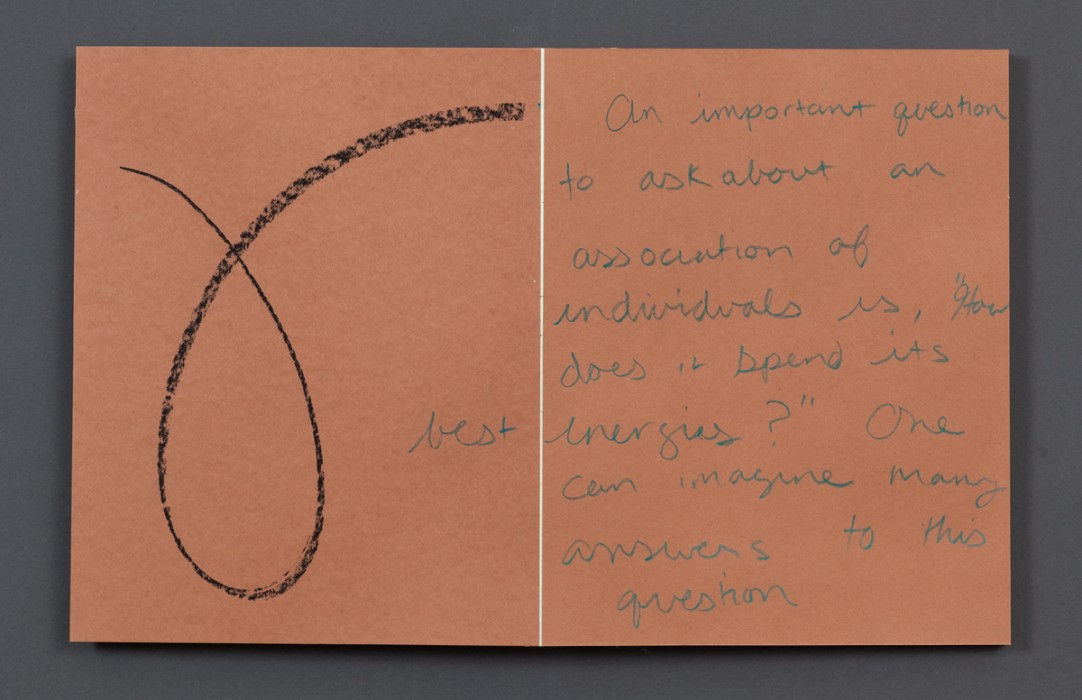 An important question
to ask about an
association of
individuals is, "How
does it spend its
best energies?" One
can imagine many
answers to this
question